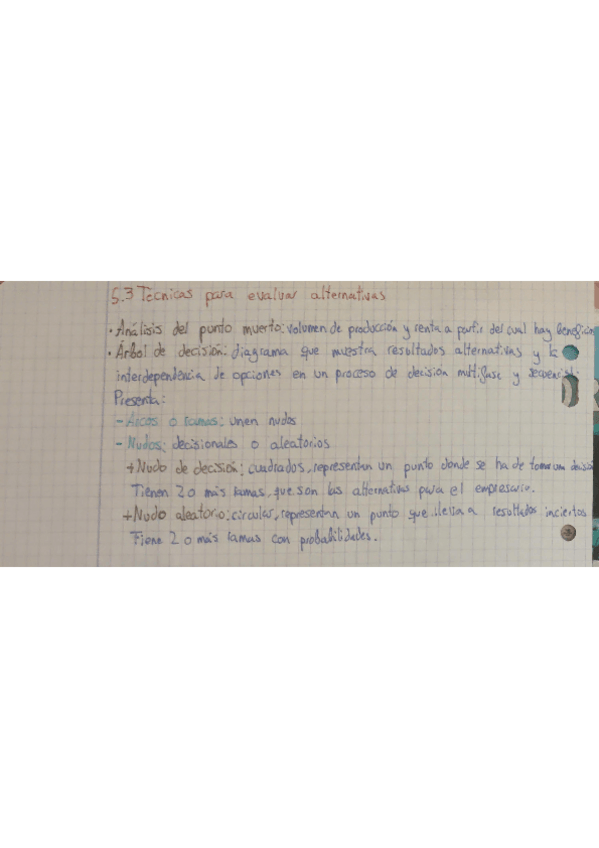 5.3 Técnicas para evaluar alternativas
• Análisis del punto muerto: volumen de producción y renta a partir del cual hay benefici
• Árbol de decisión: diagrama que muestra resultados alternativas y
interdependencia de opciones en un proceso de decisión multifase y
Presenta:
- Arcos o ramas: unen nudos
- Nudos: decisionales o aleatorios
+ Nudo de decisión: cuadrados, representan un punto donde se ha de tomar un
Tienen 2 o más ramas, que son las alternativas para el empresario.
+ Nudo aleatorio: circular, representan un punto que lleva a resultados inciertos
Tiene 2 o más ramas con probabilidades.